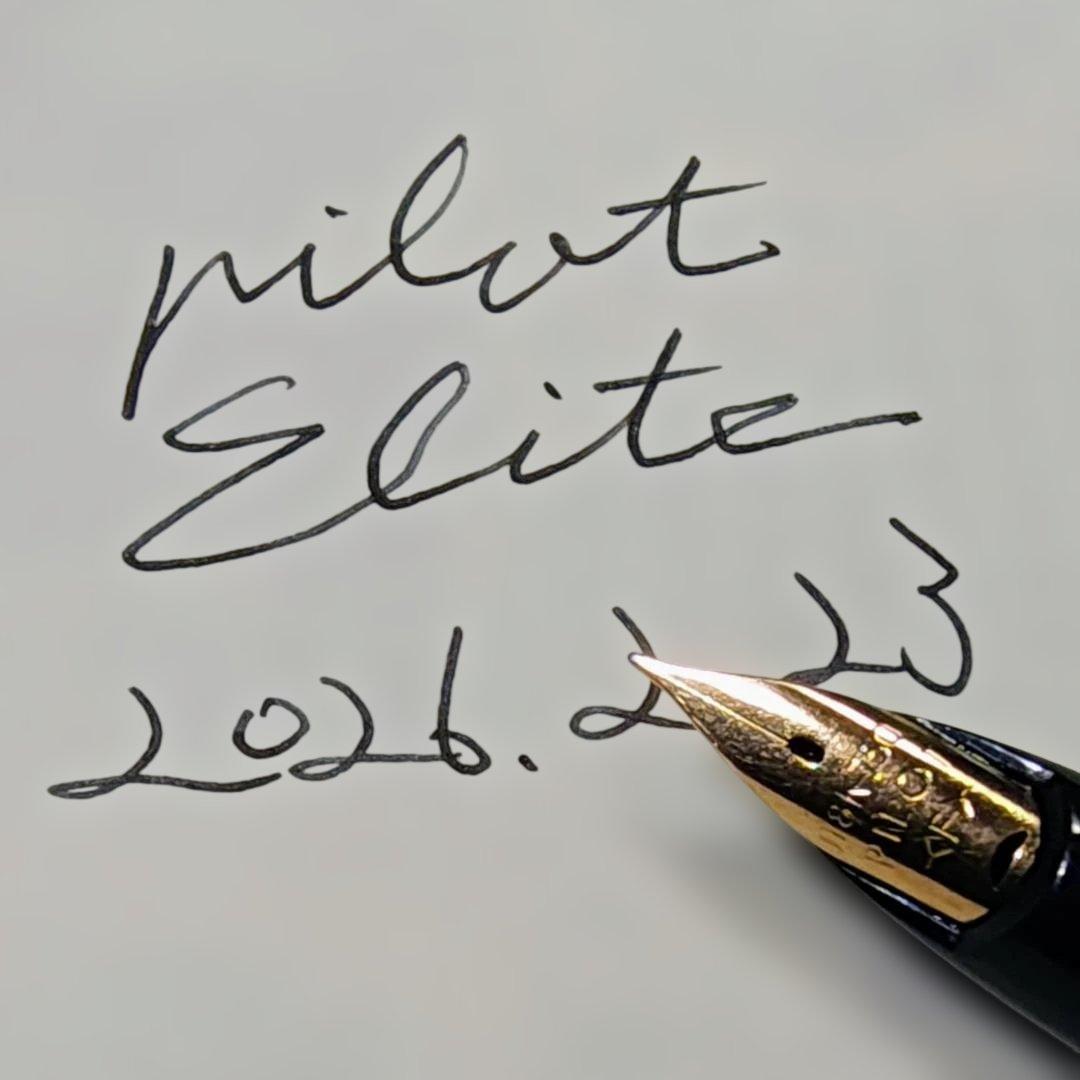 pilot
Elite
2026. 2 23